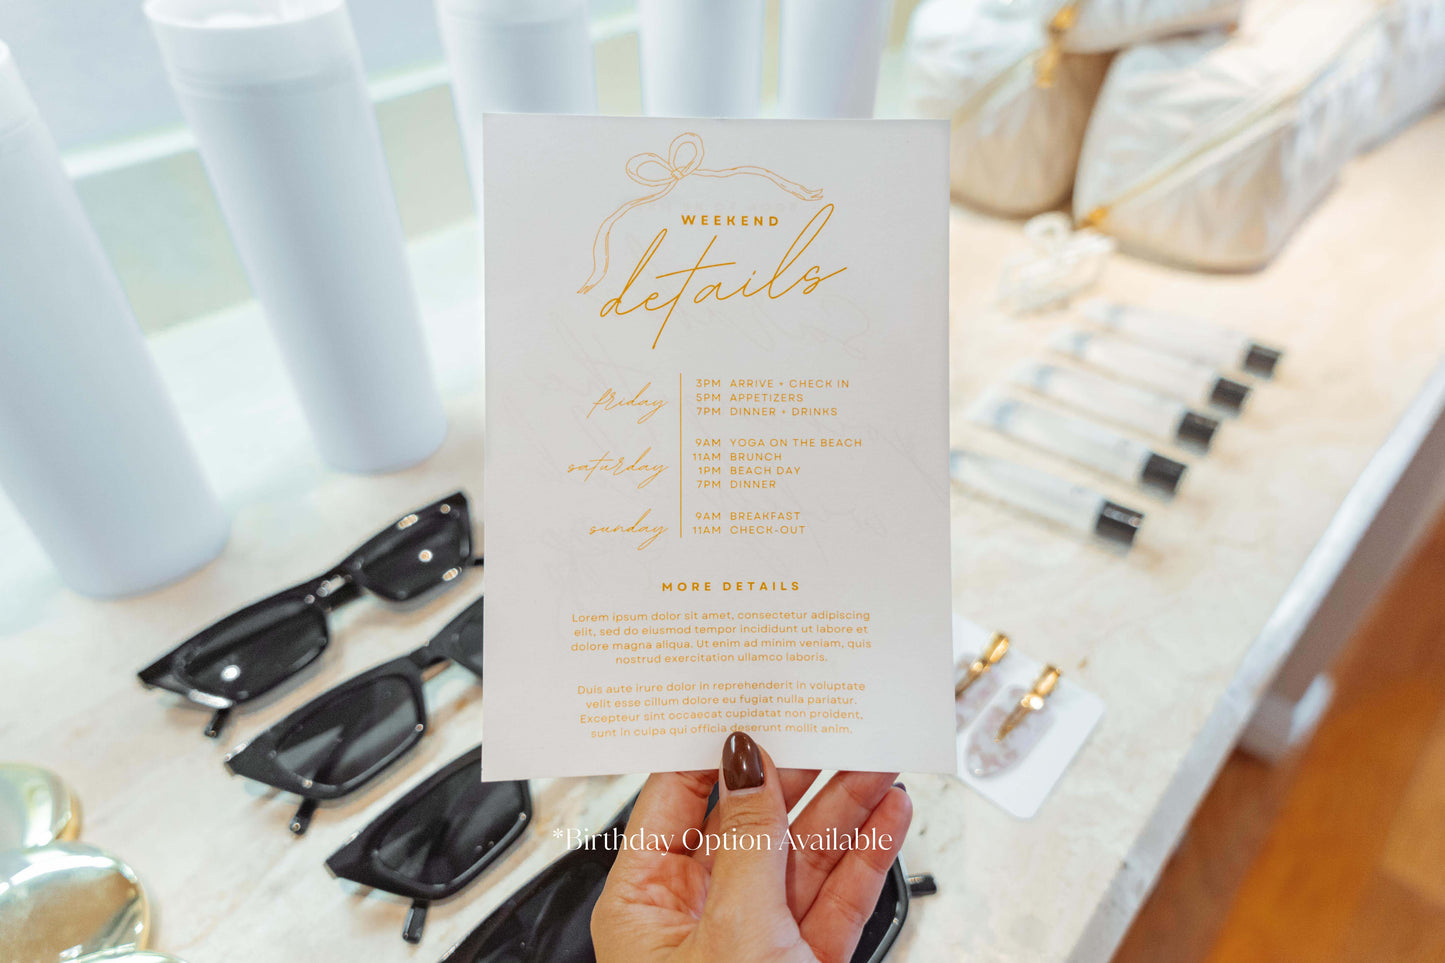 WEEKEND
details
friday
3PM ARRIVE + CHECK IN
5PM APPETIZERS
7PM DINNER + DRINKS
saturday
9AM YOGA ON THE BEACH
11AM BRUNCH
1PM BEACH DAY
7PM DINNER
sunday
9AM BREAKFAST
11AM CHECK-OUT
MORE DETAILS
Lorem ipsum dolor sit amet, consectetur adipiscing
elit, sed do eiusmod tempor incididunt ut labore et
dolore magna aliqua. Ut enim ad minim veniam, quis
nostrud exercitation ullamco laboris.
Duis aute irure dolor in reprehenderit in voluptate
velit esse cillum dolore eu fugiat nulla pariatur.
Excepteur sint occaecat cupidatat non proident,
sunt in culpa qui officia deserunt mollit anim.
*Birthday Option Available